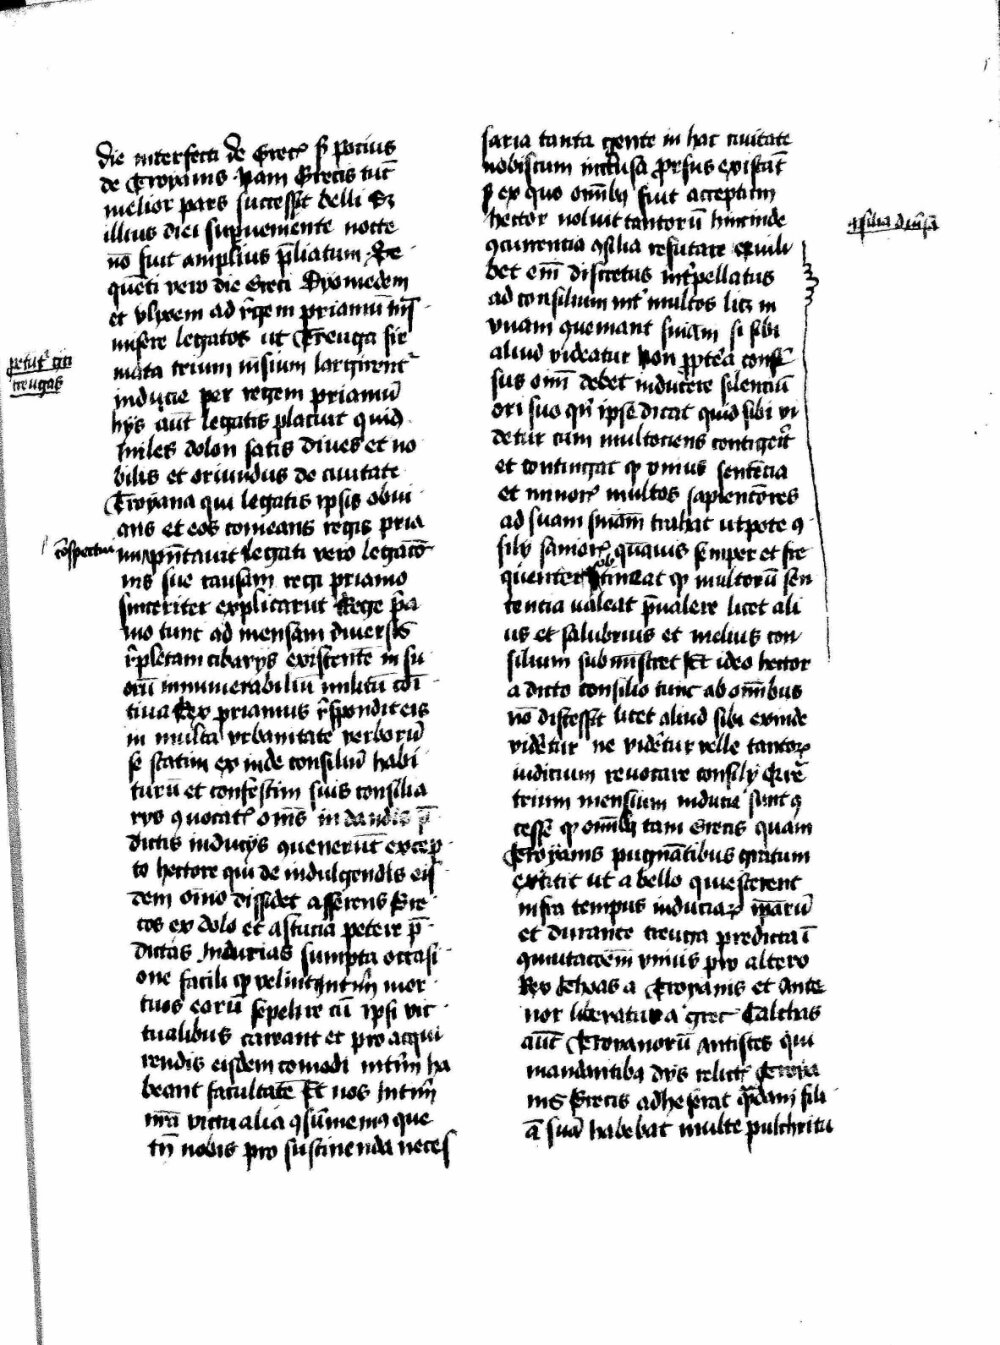 die interfecti de Grecꝭ sꝫ potius
de Troyanis Nam Grecis tūc
melior pars successꝫit belli Sꝫ
illius diei supͥuemente nocte
nō fuit amplius p̄liatum Se
quēti vero die Greci Dyomedem
et vlyxem ad rͤgem priamū tͥns
misere legatos ut Treuga fir
mata trium mēsium largirent᷑
petūt᷑ g̃ci
treugas
inducie per regem priamū
hijs aūt legatis placuit quidā
miles dolon satis diues et no
bilis et oriundus de ciuitate
Troyana qui legatis ipsis obui
ans et eos comeans regis pria
cōspectui
mi pn̄tauit Legati vero legacō
nis sue causam regi priamo
sinceriter explicarūt Rege pͥa
mo tunc ad mensam diuersis
rͤpletam cibarijs existente in su
orū innumerabiliū militū cōi
tiua Rex priamus rͤspondit eis
in multa vrbanitate verborū
se statim exinde consiliū habi
turū et confestim suis consilia
rijs ꝯuocatꝭ om̄s in dandis p̄
dictis inducijs ꝯuenerūt excep
to hectore qui de indulgendis eis
dem oīno dissidet asserens Gre
cos ex dolo et astucia petere p̄
dictas Inducias sumpta occasi
one facili ꝙ velint int̄im mor
tuos eorū sepelire cū ipsi vic
tualibus careant et pro acqui
rendis eisdem comodi int̄im ha
beant facultatē Et nos Int̄im
nr̄a victualia ꝯsumemꝰ que
tn̄ nobis pro sustinenda neces
saria tanta gente in hac ciuitate
nobiscum inclusa prorsus existāt
sꝫ ex quo om̄ibꝫ fuit acceptum
hector noluit tantorū hincinde
ꝯcurrencia ꝯsilia refutare Quili
ꝯsilia diūsa
bet em̄ discretus int̄pellatus
ad consilium int̄ multos licꝫ in
vnam quemant sn̄iam si sibi
aliud videatur Non ꝓpterͤa consē
sus om̄ debet inducere silenciū
ori suo qͥn ipse dicat quid sibi vi
detur cum multociens contigerͥt
et contingat ꝙ vnius sentēcia
et minorꝭ multos sapientores
ad suam sn̄iam trahat utpote ꝯ
silij saniorꝭ quāuis semper et fre
quenter obtineat ꝙ multorū sen
tentia ualeat p̄ualere licet ali
us et salubrius et melius con
silium subministret Et ideo hector
a dicto consilio tunc ab om̄ibus
nō discessit licet aliud sibi exinde
vidētur ne vidētur velle tantoꝝ
iudicium reuocare consilij Qua̅rē
trium mensium inducie sunt ꝯ
cesse ꝙ om̄ibꝫ tam Grecis quam
Troyanis pugnātibus gratum
extitit ut a bello quiescerent
infra tempus induciaꝝ ip̄arū
et durante treuga predicta ī
ꝯmutacōem vnius pro altero
Rex thoas a Troyanis et Ante
nor liberatur a grecꝭ Calchas
aūt Troyanorū Antistes qui
mandantibꝫ dijs relictꝭ Troya
nis Grecis adheserat quādam fili
ā suā habebat multe pulchritu